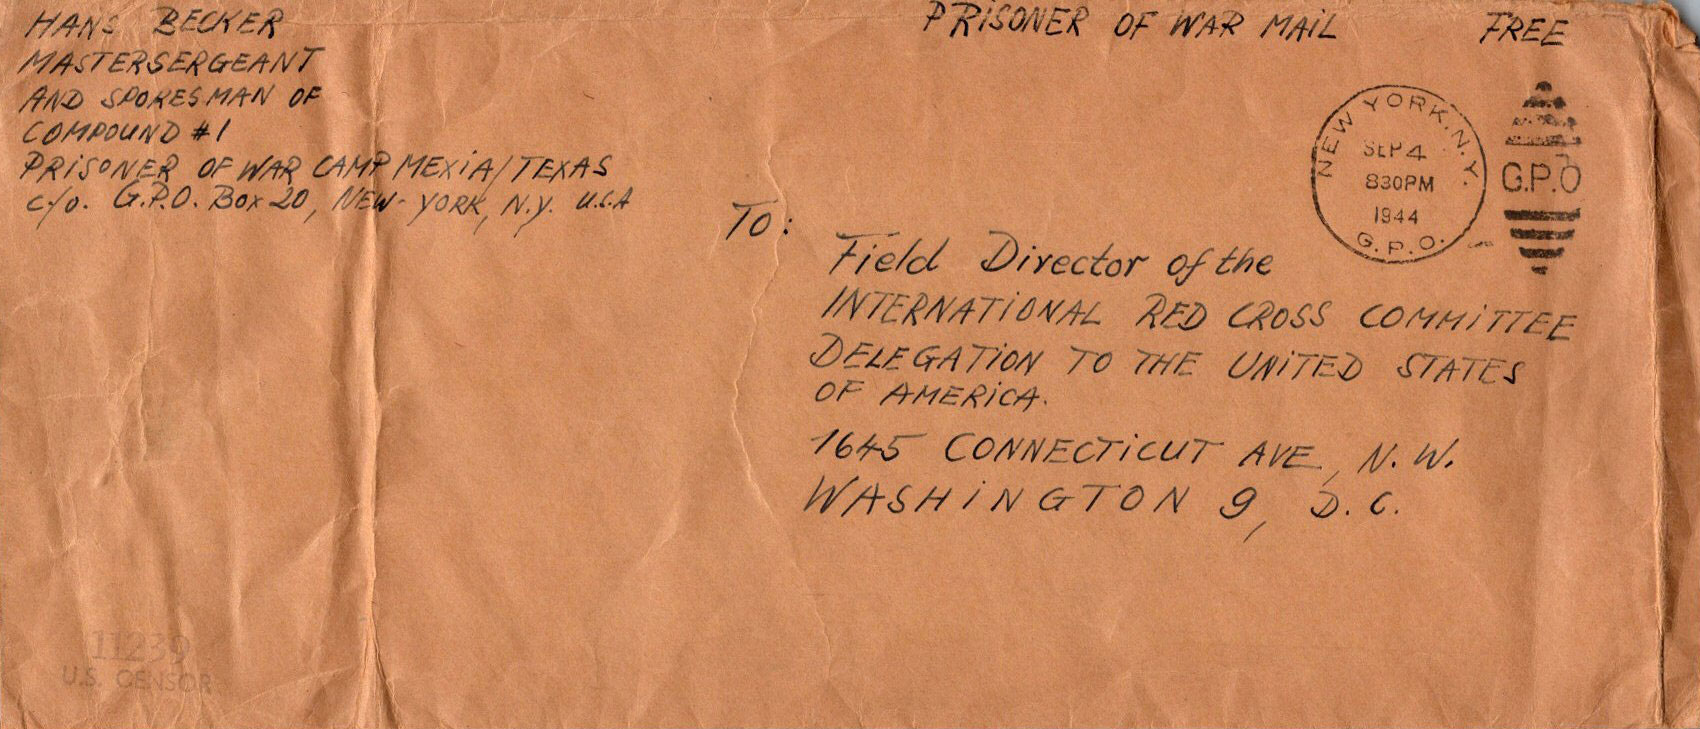 HANS BECKER
MASTERSERGEANT
AND SPOKESMAN OF
COMPOUND #1
PRISONER OF WAR CAMP MEXIA/TEXAS
c/o. G.P.O. Box 20, NEW-YORK, N.Y. U.S.A
PRISONER OF WAR MAIL FREE
NEW YORK, N.Y.
SEP 4
830PM
1944
G.P.O.
G.P.O
TO:
Field Director of the
INTERNATIONAL RED CROSS COMMITTEE
DELEGATION TO THE UNITED STATES
OF AMERICA.
1645 CONNECTICUT AVE, N.W.
WASHINGTON 9, D.C.
11239
U.S. CENSOR